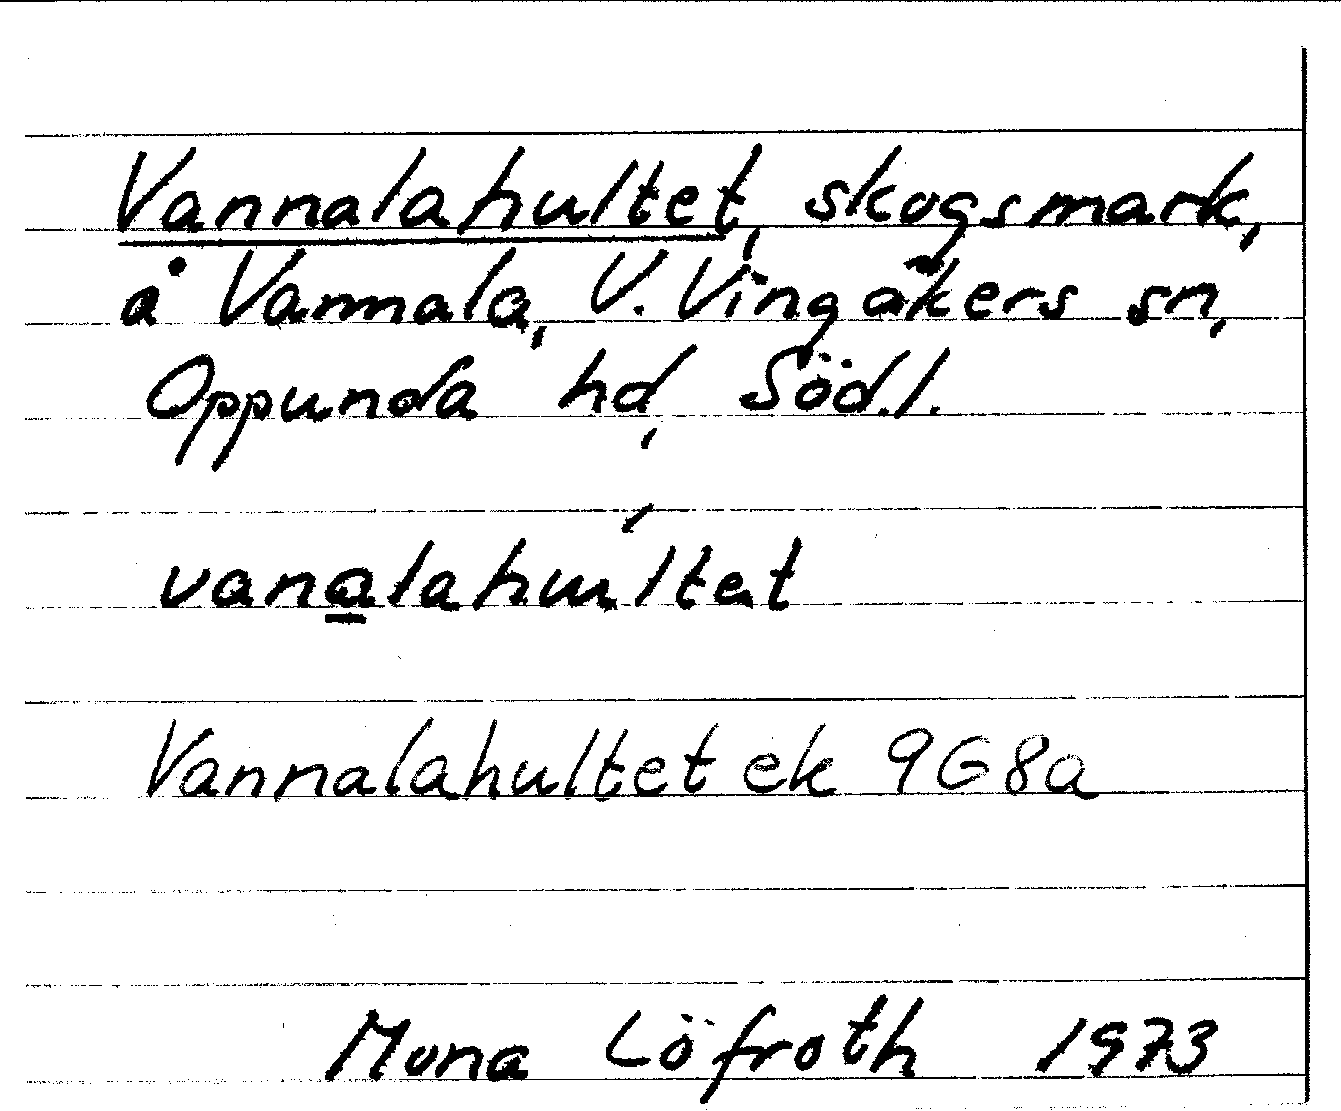 Vannalahultet, skogsmark,
å Vannala, V. Vingåkers sn,
Oppunda hd, Söd.l.
vanalahultet
Vannalahultet ek 9G8a
Mona Löfroth 1973